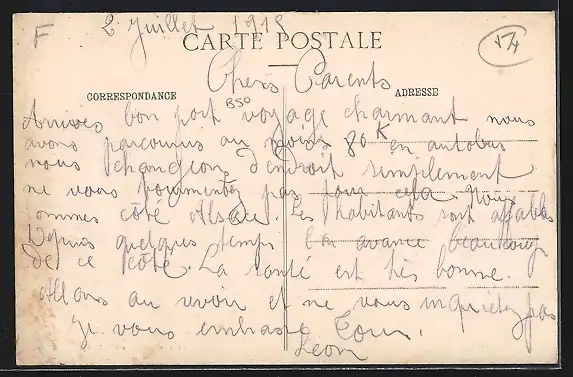 F 2 Juillet 1918
CARTE POSTALE
Chers Parents
CORRESPONDANCE B50 ADRESSE
Arrivés bon port voyage charmant nous
avons parcourus au moins 80 K en autobus
nous changeon d'endroit simplement
ne vous tourmentez pas pour cela. Nous
sommes côté Alsace. Les habitants sont affables
Depuis quelques temps on avance beaucoup
de ce côté. La santé est très bonne.
Allons au revoir et ne vous inquiétez pas
Je vous embrasse Tous.
Léon